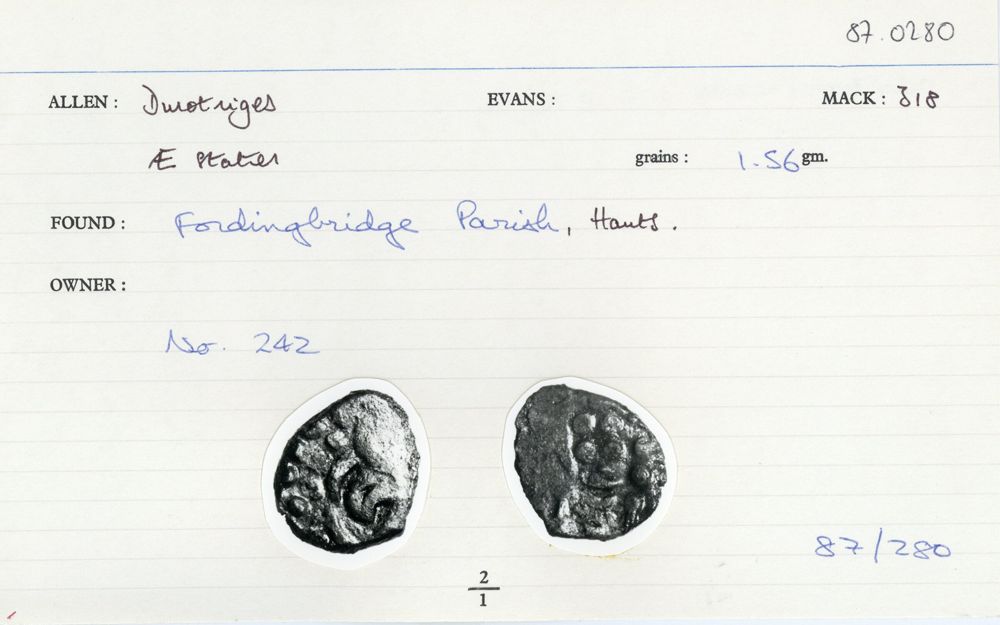 87.0280
ALLEN: Durotriges EVANS: MACK: 318
Æ Stater grains: 1.56 gm.
FOUND: Fordingbridge Parish, Hants.
OWNER:
No. 242
87/280
2
1